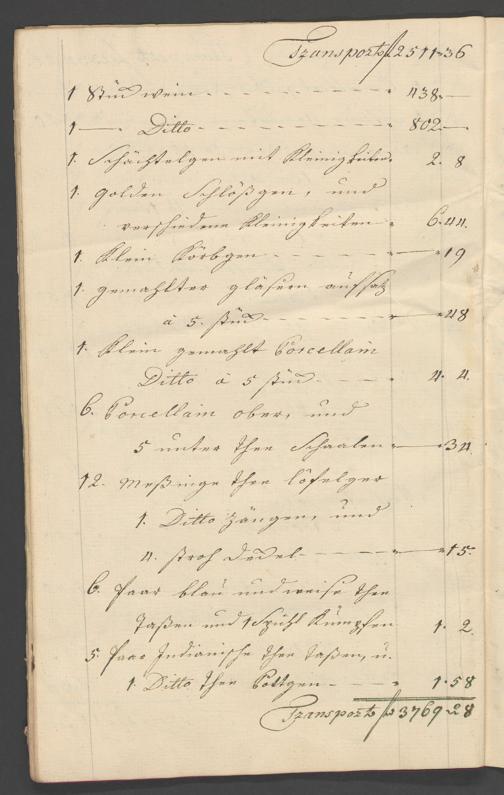 Transporto f 2511 36
1 Stück wein - - - - - - - - 438 —
1 — Ditto - - - - - - - - 802 —
1. Schächtelgen mit Kleinigkeiten 2. 8
1. golden Schlößgen, und
verschiedene Kleinigkeiten 6. 44.
1. Klein Körbgen - - - - - — 19
1. gemahlter gläsern auffsatz
à 5. stück - - - - - - — 48
1. Klein gemahlt Porcellain
Ditto à 5 stück - - - - 4. 4.
6. Porcellain ober, und
5 unter Thee Schaalen — 34
12. Meßinge Thee löfelger
1. Ditto Zängen, und
4. stroh Deckel - - - - - — 15.
6. Paar blau und weise Thee
Taßen und 1 Spühl Kümpfen 1. 2.
5. Paar Indianische Thee Taßen, u.
1. Ditto Thee Pottgen - - - 1. 58
Transporto f 3769 28